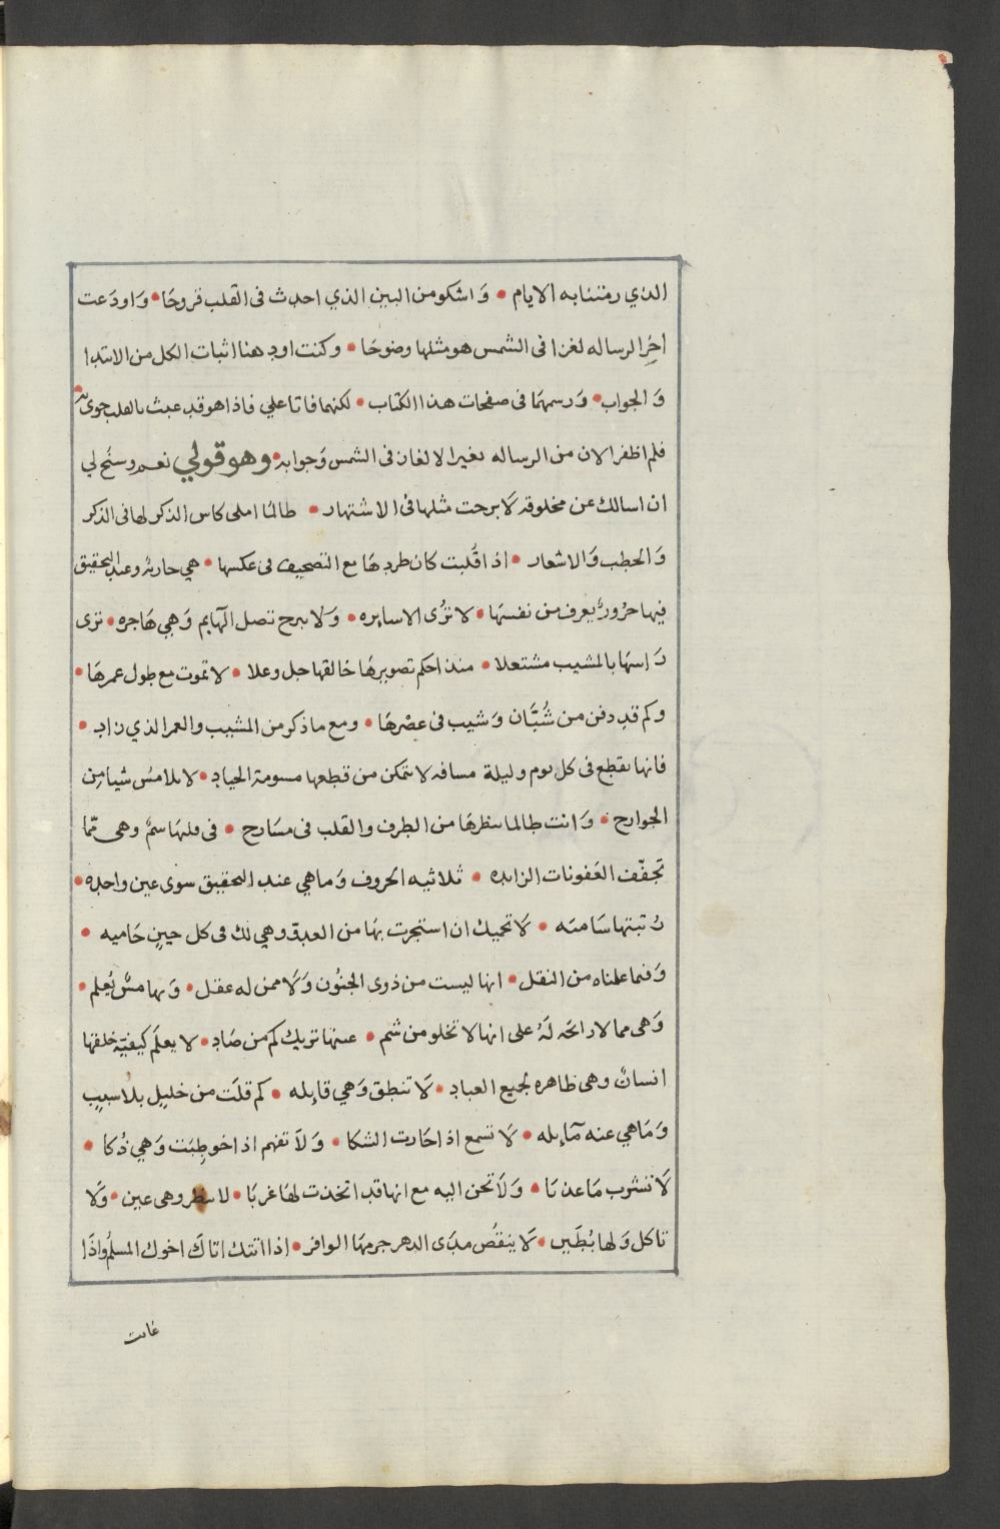 الذي رمتنا به الايام • وَاشكو من البين الذي احدث فى القلب قروحًا • وَاودَعت
اخِر الرساله لغزا فى الشمس هو مثلها وضوحًا • وكنت اود هنا اثبات الكل من الابتدا
وَالجواب • وَرسمهمَا فى صفحات هذا الكتاب • لكنهما فاتا علي فاذا هو قد عبث بالقلب جوى
فلم اظفر الان من الرساله بغير الالغاز فى الشمس وَجوابه • وهو قولي نعم وسنَح لي
ان اسالك عن مخلوقه لَا برحت مثلها فى الاشتهار • طالما املى كاس الذكر لها فى الذكر
وَالخطب وَالاشعار • اذا قُلبت كان طردهَا مع التصحيف فى عكسها • هي حارة وعند التحقيق
فيها حرُورٌ يعرف من نفسهَا • لا تُرى الا سايره • وَلا يبرح تصل البهايم وَهي هَاجره • ترى
رَاسهَا بالمشيب مشتعلا • منذ احكم تصويرهَا خالقها جل وعلا • لا تموت مع طول عمرهَا •
وكم قد دفن من شُبَّان وَشيب فى عصْرهَا • ومع ما ذكر من المشيب والعمر الذي زاد •
فانها تقطع فى كل يوم وليلة مسافه لا تتمكن من قطعها مسومة الجياد • لا تلامسُ شيا مِن
الجوارح • وَانت طالما تنظرهَا من الطرف والقلب فى مسَارح • فى قلبهَا سمٌ وهى مّما
تجفّف العَفونات الزايده • ثلاثيه الحروف وَما هي عند التحقيق سوى عين واحده •
رُتبتها سَامته • لَا تحيك ان استجرت بهَا من العدو وهي لك فى كل حينٍ حَاميه •
وَفيما علمناه من النقل • انها ليست من ذوى الجنُون وَلَا ممن له عقل • وَبها مسٌّ يُعلم •
وَهى مما لا رائحَه لَهُ على انها لا تخلو من شم • عينها تريك كم من صَادٍ • لا يعلَم كيفيّة خلقها
انسانٌ وهى ظاهره لجميع العباد • لَا تنطق وَهي قايله • كم قلَت من خليل بلا سبب
وَمَا هي عنه مَايله • لَا تسمع اذا حَارت الشكا • وَلَا تفهم اذا خوطِبَت وَهي ذُكا •
لَا تشرب مَا عذبَا • وَلَا تحن اليه مع انها قد اتخذت لهَا غربًا • لا تنظر وهى عين • وَلَا
تاكل وَلها بُطَين • لَا ينقُص مدَى الدهر جرمهَا الوافر • اذا اتتك اتاكَ اخوك المسلمُ واذَا
غابت